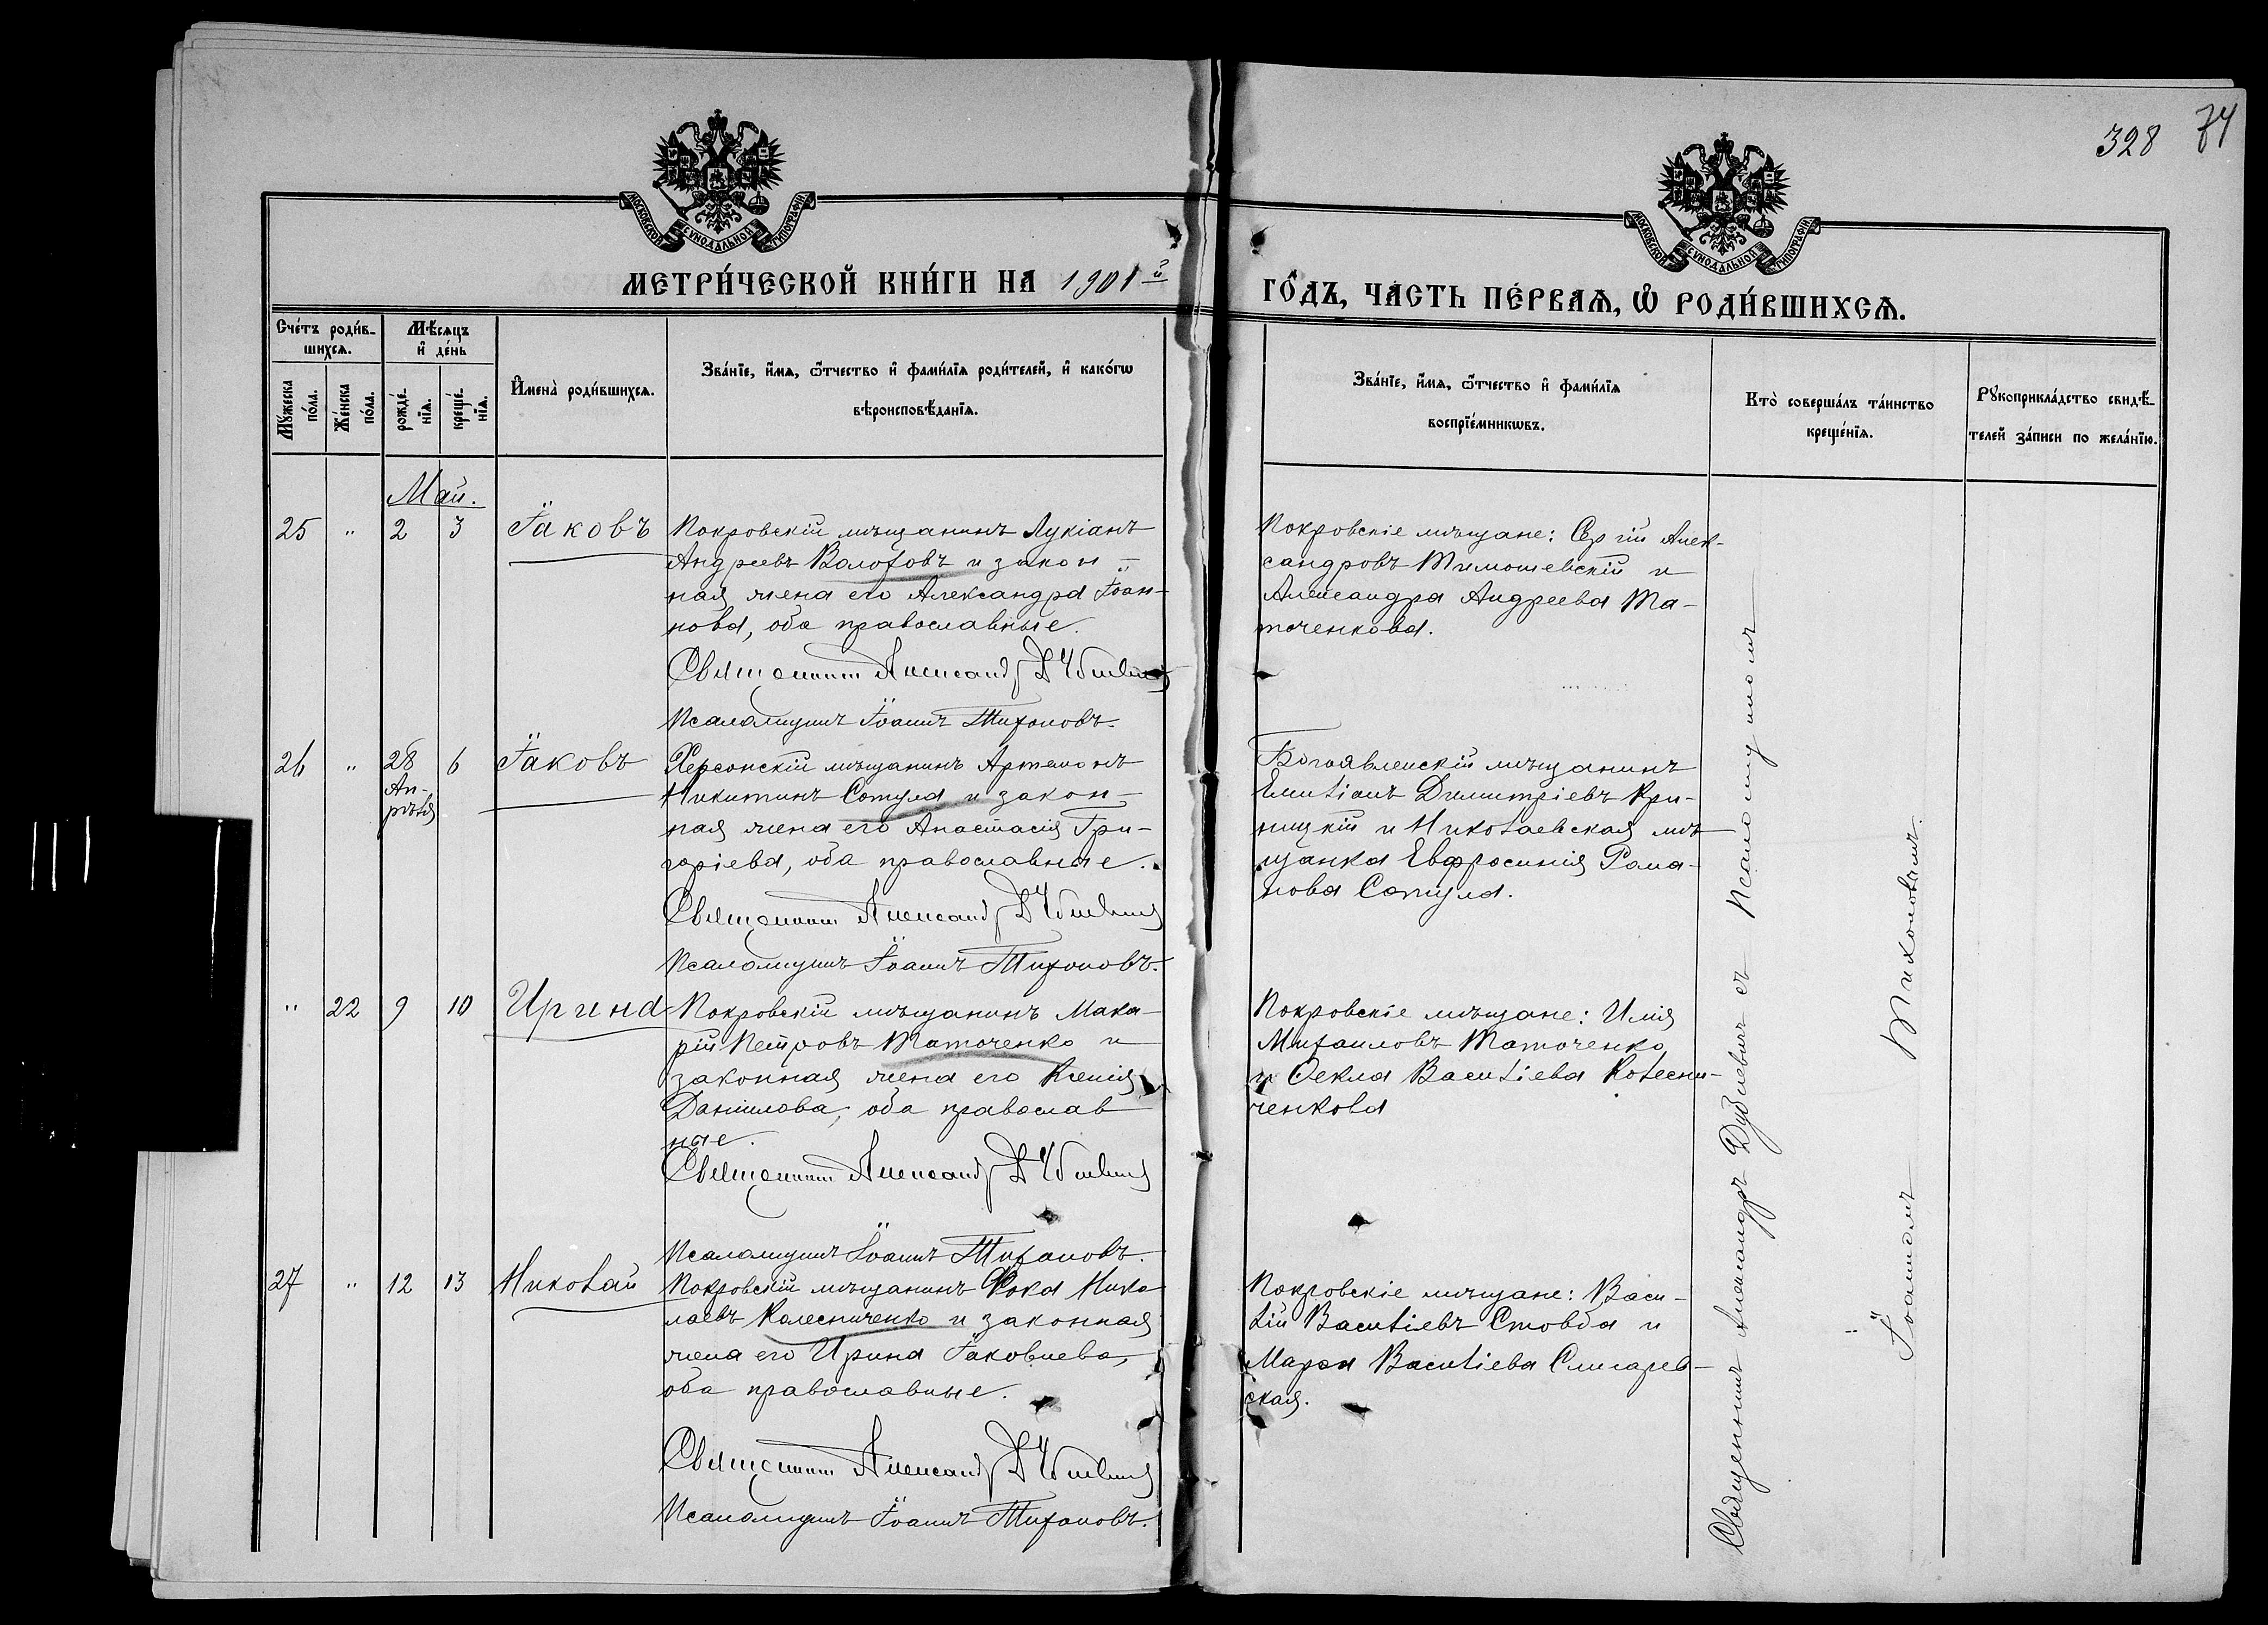 328 74
МОСКОВСКОЙ СУНОДАЛЬНОЙ ТИПОГРАФІИ
МОСКОВСКОЙ СУНОДАЛЬНОЙ ТИПОГРАФІИ
МЕТРИ́ЧЕСКОЙ КНИ́ГИ НА 1901й
ГО́ДЪ, ЧА́СТЬ ПЕ́РВАѦ, Ѡ҆ РОДИ́ВШИХСѦ.
Сче́тъ роди́в-
шихсѧ.
Мꙋ́жеска
по́ла.
Же́нска
по́ла.
Мѣ́сѧцъ
и҆ де́нь
рожде́-
нїѧ.
креще́-
нїѧ.
И҆мена̀ роди́вшихсѧ.
Зва́нїе, и҆́мѧ, ѻ҆́тчество и҆ фами́лїѧ роди́телей, и҆ како́гѡ
вѣроисповѣ́данїѧ.
Зва́нїе, и҆́мѧ, ѻ҆́тчество и҆ фами́лїѧ
воспрїе́мникѡвъ.
Кто̀ соверша́лъ та́инство
креще́нїѧ.
Рꙋкоприкла́дство свидѣ́-
телей за́писи по жела́нїю.
Май.
25 " 2 3 Іаковъ
Покровскій мѣщанинъ Лукіанъ
Андреевъ Волоховъ и закон-
ная жена его Александра Іоан-
нова, оба православные.
Священник Александр
Псаломщикъ Іоаннъ Тихоновъ.
Покровскіе мѣщане: Сергій Алек-
сандровъ Тимошевскій и
Александра Андреева Та-
точенкова.
26 " 28 Ап-
рѣля 6 Іаковъ
Херсонскій мѣщанинъ Артемонъ
Никитинъ Сотула и закон-
ная жена его Анастасія Гри-
горіева, оба православные.
Священник Александр
Псаломщикъ Іоаннъ Тихоновъ.
Богоявленскій мѣщанинъ
Емиліанъ Димитріевъ Кри-
ницкій и Николаевская мѣ-
щанка Евфросинія Рома-
нова Сотула.
" 22 9 10 Ирина
Покровскій мѣщанинъ Мака-
рій Петровъ Таточенко и
законная жена его Ксенія
Даніилова, оба православ
ные.
Священник Александр
Псаломщикъ Іоаннъ Тихоновъ.
Покровскіе мѣщане: Илія
Михаиловъ Таточенко
и Ѳекла Василіева Колесни-
ченкова
27 " 12 13 Николай
Покровскій мѣщанинъ Фока Нико
лаевъ Колесниченко и законная
жена его Ирина Іаковлева,
оба православные.
Священник Александр
Псаломщикъ Іоаннъ Тихоновъ.
Покровскіе мѣщане: Васи-
лій Василіевъ Стовба и
Марѳа Василіева Слюсарев-
ская.
Священникъ Александръ Дубневичъ съ Псаломщикомъ
Іоанномъ Тихоновымъ.